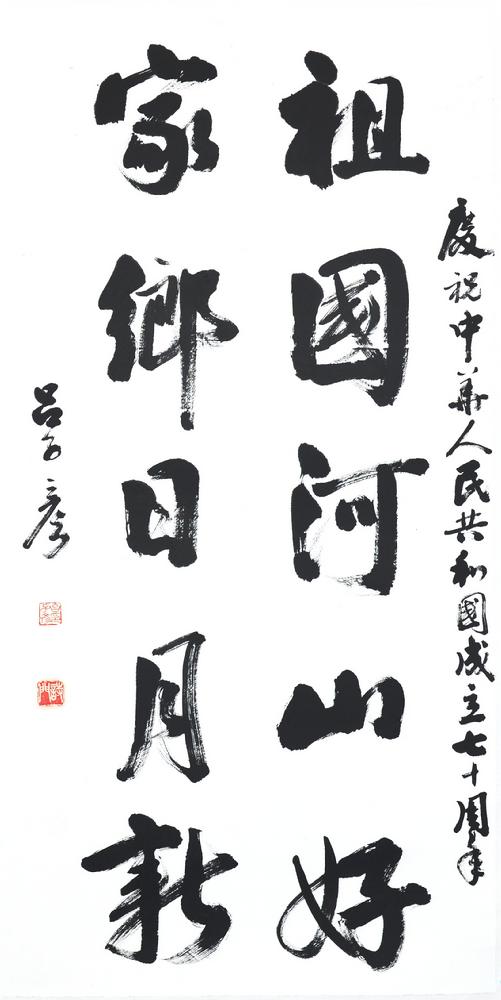 慶祝中華人民共和國成立七十周年
祖國河山好
家鄉日月新
呂子彥